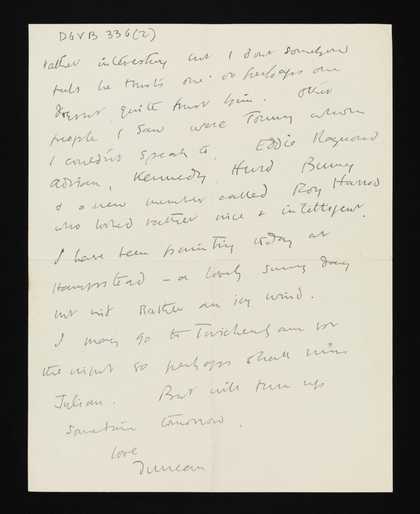 DGVB 336(2)
rather interesting but I don't somehow
feel he trusts one or perhaps one
doesn't quite trust him. Other
people I saw were Tommy whom
I couldn't speak to, Eddie Raymond
Adrian, Kennedy, Hurd Bunny
& a new member called Roy Harrod
who looked rather nice & intelligent.
I have been painting today at
Hampstead - a lovely sunny day
but with Rather an icy wind.
I may go to Twickenham for
the night so perhaps shall miss
Julian. But will turn up
sometime tomorrow.
love
Duncan